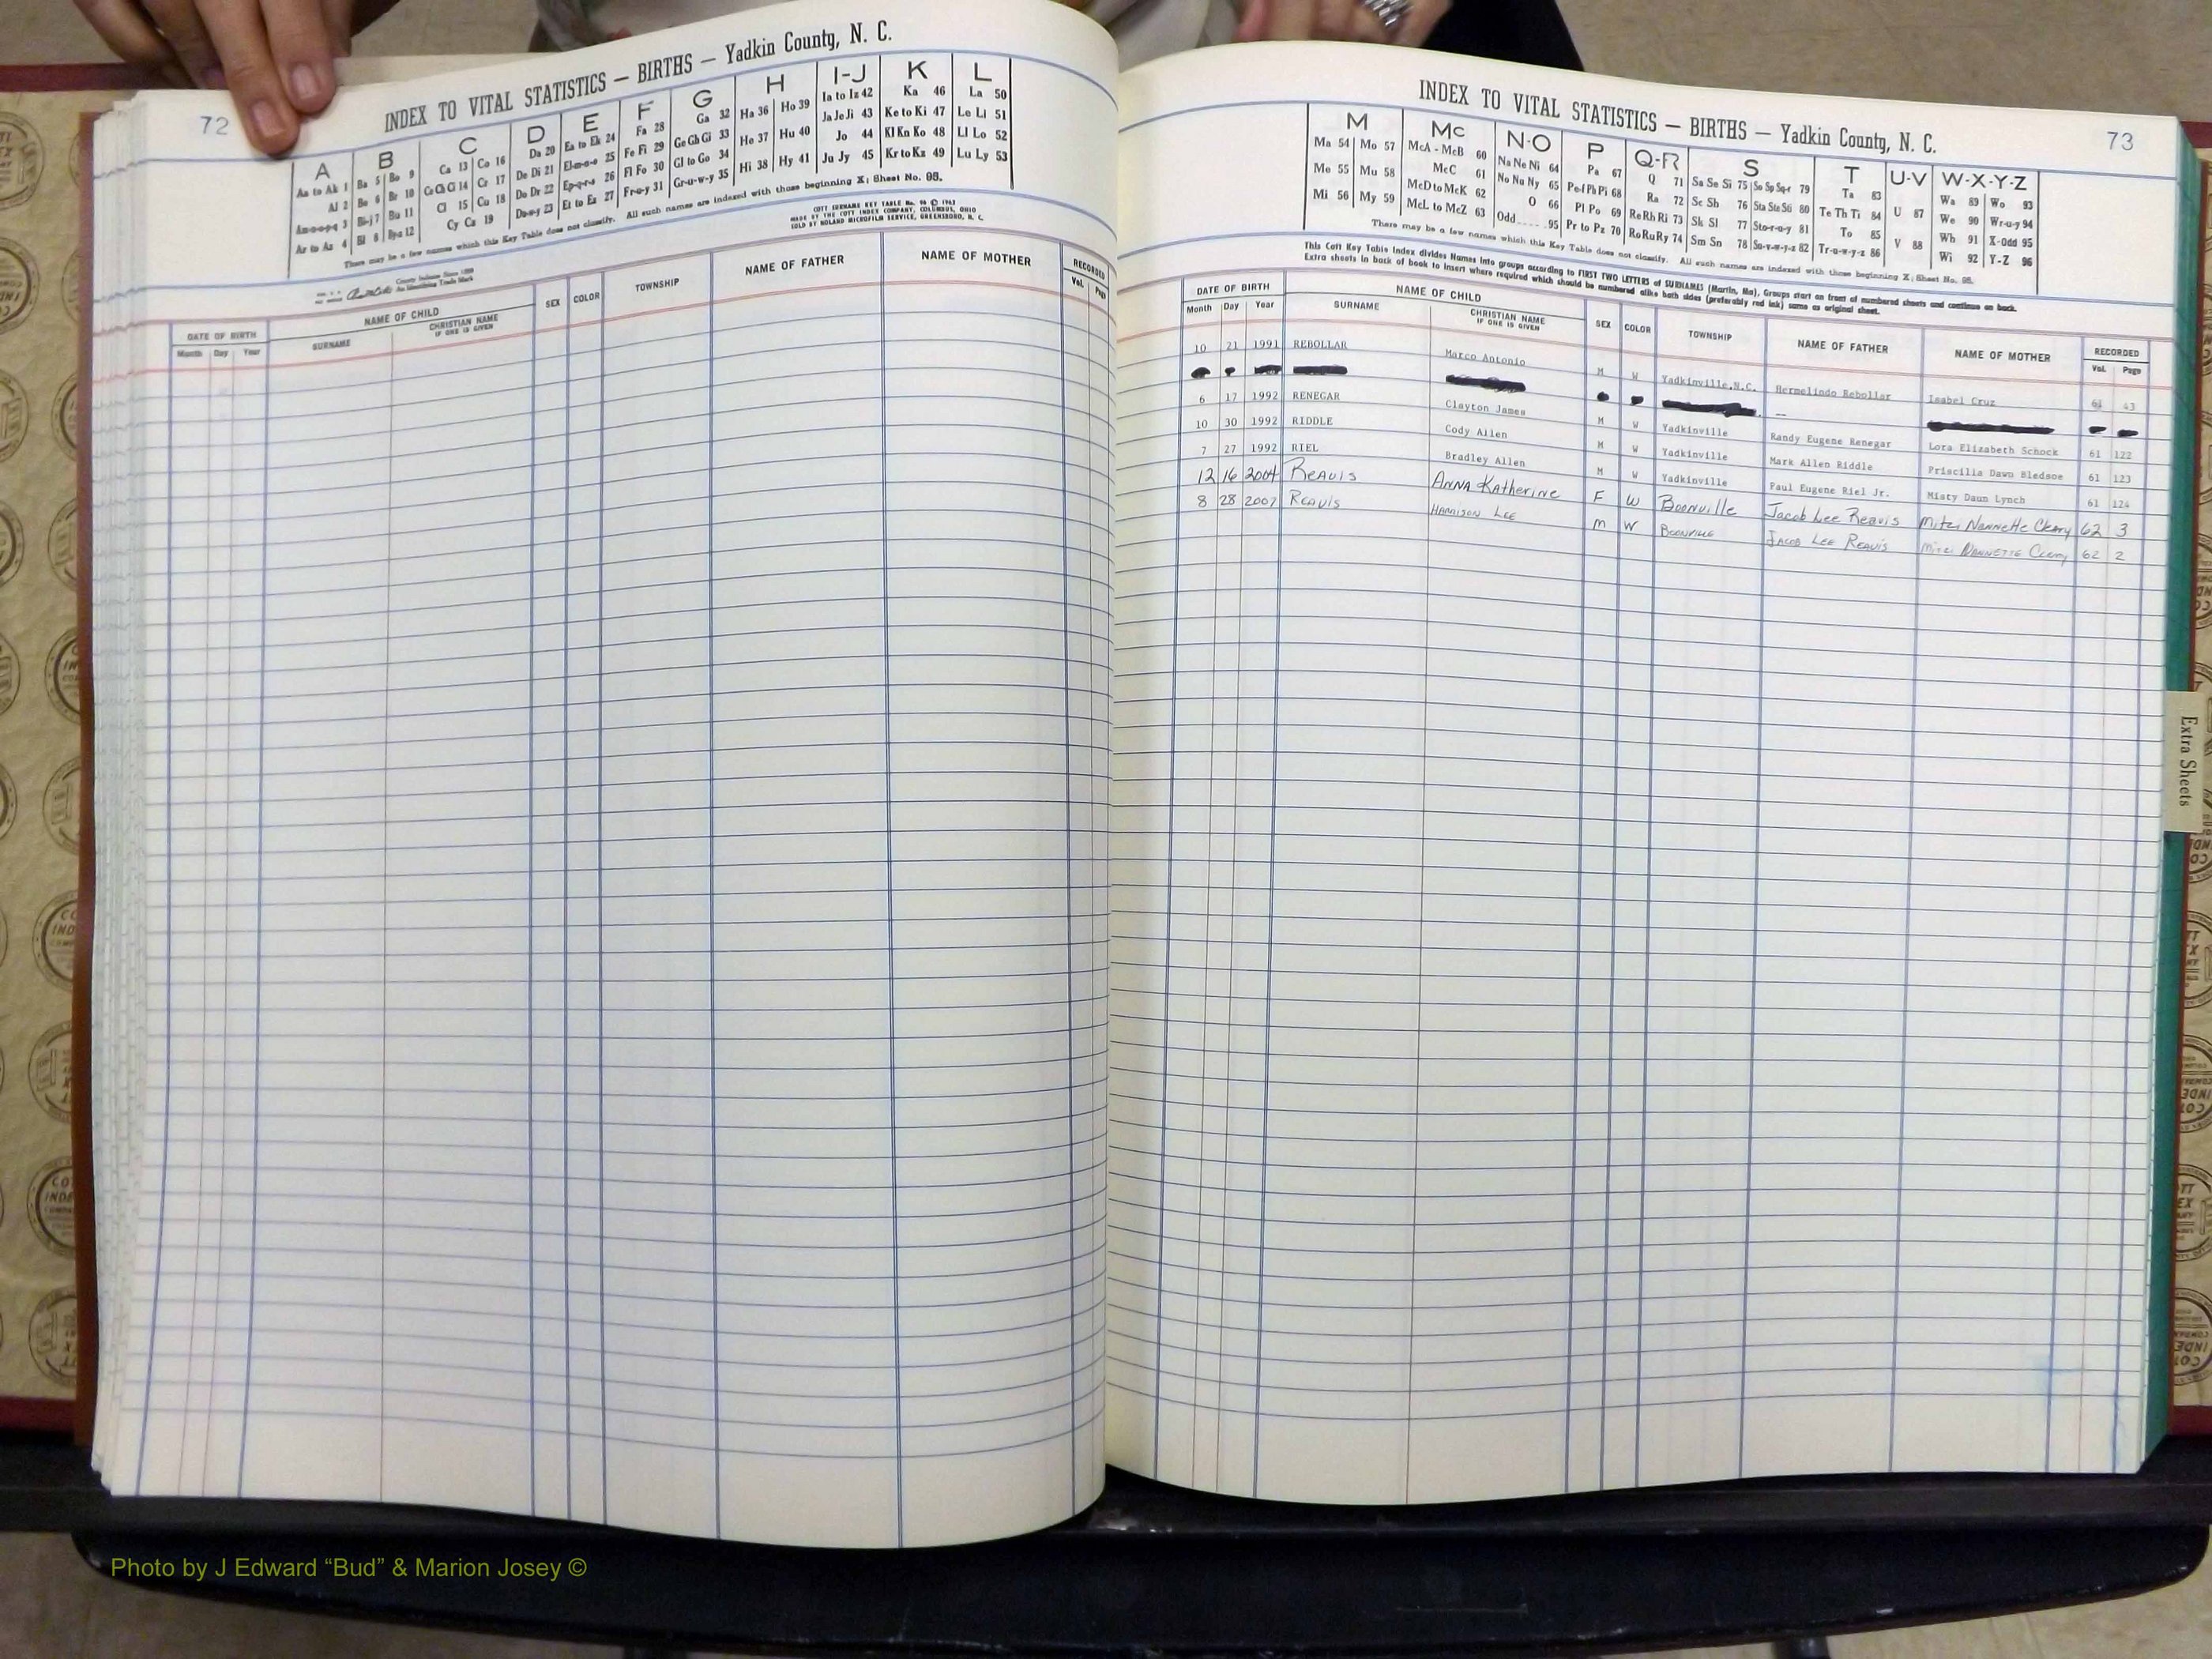 72
INDEX TO VITAL STATISTICS — BIRTHS — Yadkin County, N. C.
A B C D E F G H I-J K L
Aa to Ak 1 Ba 5 Bo 9 Ca 13 Co 16 Da 20 Ea to Ek 24 Fa 28 Ga 32 Ha 36 Ho 39 Ia to Iz 42 Ka 46 La 50
Al 2 Be 6 Br 10 Ce Ch Ci 14 Cr 17 De Di 21 El-m-n-o 25 Fe Fi 29 Ge Gh Gi 33 He 37 Hu 40 Ja Je Ji 43 Ke to Ki 47 Le Li 51
Am-n-o-p-q 3 Bi-j 7 Bu 11 Cl 15 Cu 18 Do Dr 22 Ep-q-r-s 26 Fl Fo 30 Gl to Go 34 Hi 38 Hy 41 Jo 44 Kl Kn Ko 48 Ll Lo 52
Ar to Az 4 Bl 8 By-z 12 Cy Cz 19 Du-w-y 23 Et to Ez 27 Fr-u-y 31 Gr-u-w-y 35 Ju Jy 45 Kr to Kz 49 Lu Ly 53
There may be a few names which this Key Table does not classify. All such names are indexed with those beginning X; Sheet No. 95.
COTT SURNAME KEY TABLE
MADE BY THE COTT INDEX COMPANY, COLUMBUS, OHIO
SOLD BY NOLAND MICROFILM SERVICE, GREENSBORO, N. C.
County Indexes Since 1888
An Identifying Trade Mark
DATE OF BIRTH NAME OF CHILD SEX COLOR TOWNSHIP NAME OF FATHER NAME OF MOTHER RECORDED
Month Day Year SURNAME CHRISTIAN NAME IF ONE IS GIVEN Vol. Page
73
INDEX TO VITAL STATISTICS — BIRTHS — Yadkin County, N. C.
M Mc N-O P Q-R S T U-V W-X-Y-Z
Ma 54 Mo 57 McA - McB 60 Na Ne Ni 64 Pa 67 Q 71 Sa Se Si 75 So Sp Sq-r 79 Ta 83 U 87 Wa 89 Wo 93
Me 55 Mu 58 McC 61 No Nu Ny 65 Pe-f Ph Pi 68 Ra 72 Sc Sh 76 Sta Ste Sti 80 Te Th Ti 84 V 88 We 90 Wr-u-y 94
Mi 56 My 59 McD to McK 62 O 66 Pl Po 69 Re Rh Ri 73 Sk Sl 77 Sto-r-u-y 81 To 85 Wh 91 X-Odd 95
McL to McZ 63 Odd 95 Pr to Pz 70 Ro Ru Ry 74 Sm Sn 78 Su-v-w-y-z 82 Tr-u-w-y-z 86 Wi 92 Y-Z 96
There may be a few names which this Key Table does not classify. All such names are indexed with those beginning X; Sheet No. 95.
This Cott Key Table Index divides Names into groups according to FIRST TWO LETTERS of SURNAMES (Martin, Ma). Groups start on front of numbered sheets and continue on back.
Extra sheets in back of book to insert where required which should be numbered alike both sides (preferably red ink) same as original sheet.
DATE OF BIRTH NAME OF CHILD SEX COLOR TOWNSHIP NAME OF FATHER NAME OF MOTHER RECORDED
Month Day Year SURNAME CHRISTIAN NAME IF ONE IS GIVEN Vol. Page
10 21 1991 REBOLLAR Marco Antonio M W Yadkinville,N.C. Hermelindo Rebollar Isabel Cruz 61 43
--
6 17 1992 RENEGAR Clayton James M W Yadkinville Randy Eugene Renegar Lora Elizabeth Schock 61 122
10 30 1992 RIDDLE Cody Allen M W Yadkinville Mark Allen Riddle Priscilla Dawn Bledsoe 61 123
7 27 1992 RIEL Bradley Allen M W Yadkinville Paul Eugene Riel Jr. Misty Daun Lynch 61 124
12 16 2004 REAVIS ANNA Katherine F W Boonville Jacob Lee Reavis Mitzi Nannette Cleary 62 3
8 28 2007 REAVIS HARRISON LEE M W BOONVILLE JACOB LEE REAVIS Mitzi NANNETTE Cleary 62 2
Extra Sheets
Photo by J Edward “Bud” & Marion Josey ©